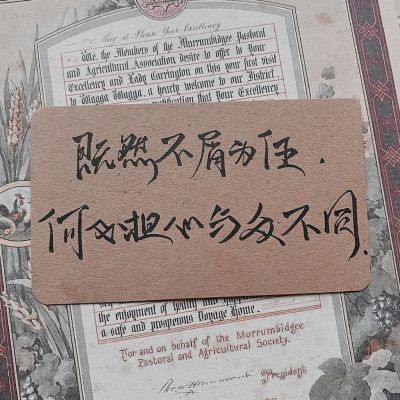 May it Please Your Excellency
We, the Members of the Murrumbidgee Pastoral
and Agricultural Association desire to offer to Your
Excellency and Lady Carrington on this your first visit
to Wagga Wagga, a hearty welcome to our District.
that Your Excellency
既然不屑为伍.
何必担心与众不同.
the enjoyment of health and
a safe and prosperous Voyage Home.
For and on behalf of the Murrumbidgee
Pastoral and Agricultural Society.
President